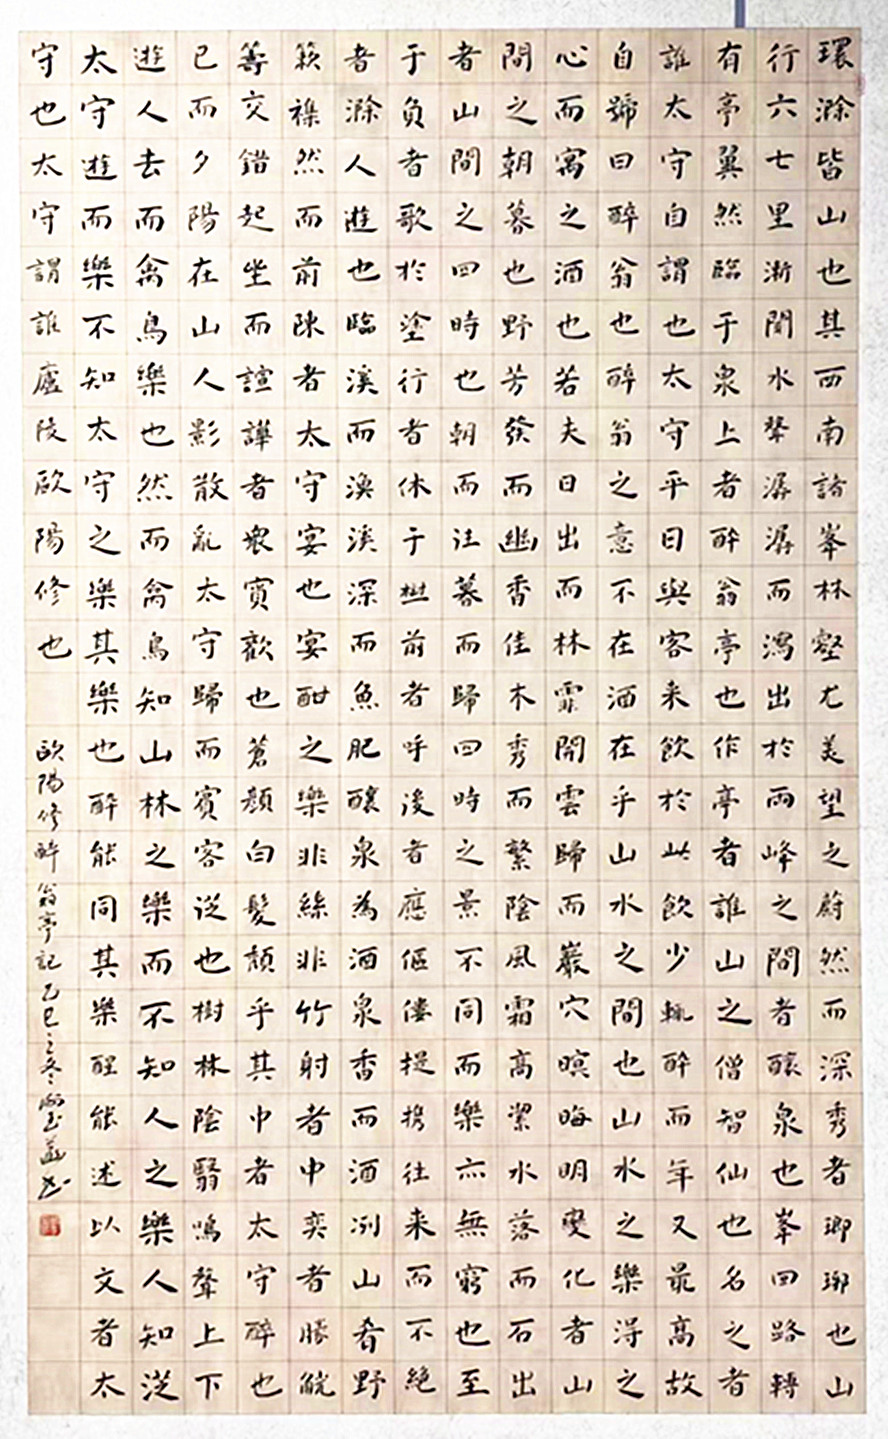 環滁皆山也其西南諸峯林壑尤美望之蔚然而深秀者瑯琊也山
行六七里漸聞水聲潺潺而瀉出於兩峰之間者釀泉也峯回路轉
有亭翼然臨于泉上者醉翁亭也作亭者誰山之僧智仙也名之者
誰太守自謂也太守平日與客来飲於此飲少輒醉而年又最高故
自號曰醉翁也醉翁之意不在酒在乎山水之間也山水之樂得之
心而寓之酒也若夫日出而林霏開雲歸而巖穴暝晦明變化者山
間之朝暮也野芳發而幽香佳木秀而繁陰風霜高潔水落而石出
者山間之四時也朝而往暮而歸四時之景不同而樂亦無窮也至
于負者歌於塗行者休于樹前者呼後者應傴僂提携往来而不絕
者滁人遊也臨溪而漁溪深而魚肥釀泉為酒泉香而酒冽山肴野
蔌雜然而前陳者太守宴也宴酣之樂非絲非竹射者中奕者勝觥
籌交錯起坐而諠譁者衆賓歡也蒼顏白髮頹乎其中者太守醉也
已而夕陽在山人影散亂太守歸而賓客從也樹林陰翳鳴聲上下
遊人去而禽鳥樂也然而禽鳥知山林之樂而不知人之樂人知從
太守遊而樂不知太守之樂其樂也醉能同其樂醒能述以文者太
守也太守謂誰廬陵歐陽修也
歐陽修醉翁亭記乙巳之冬